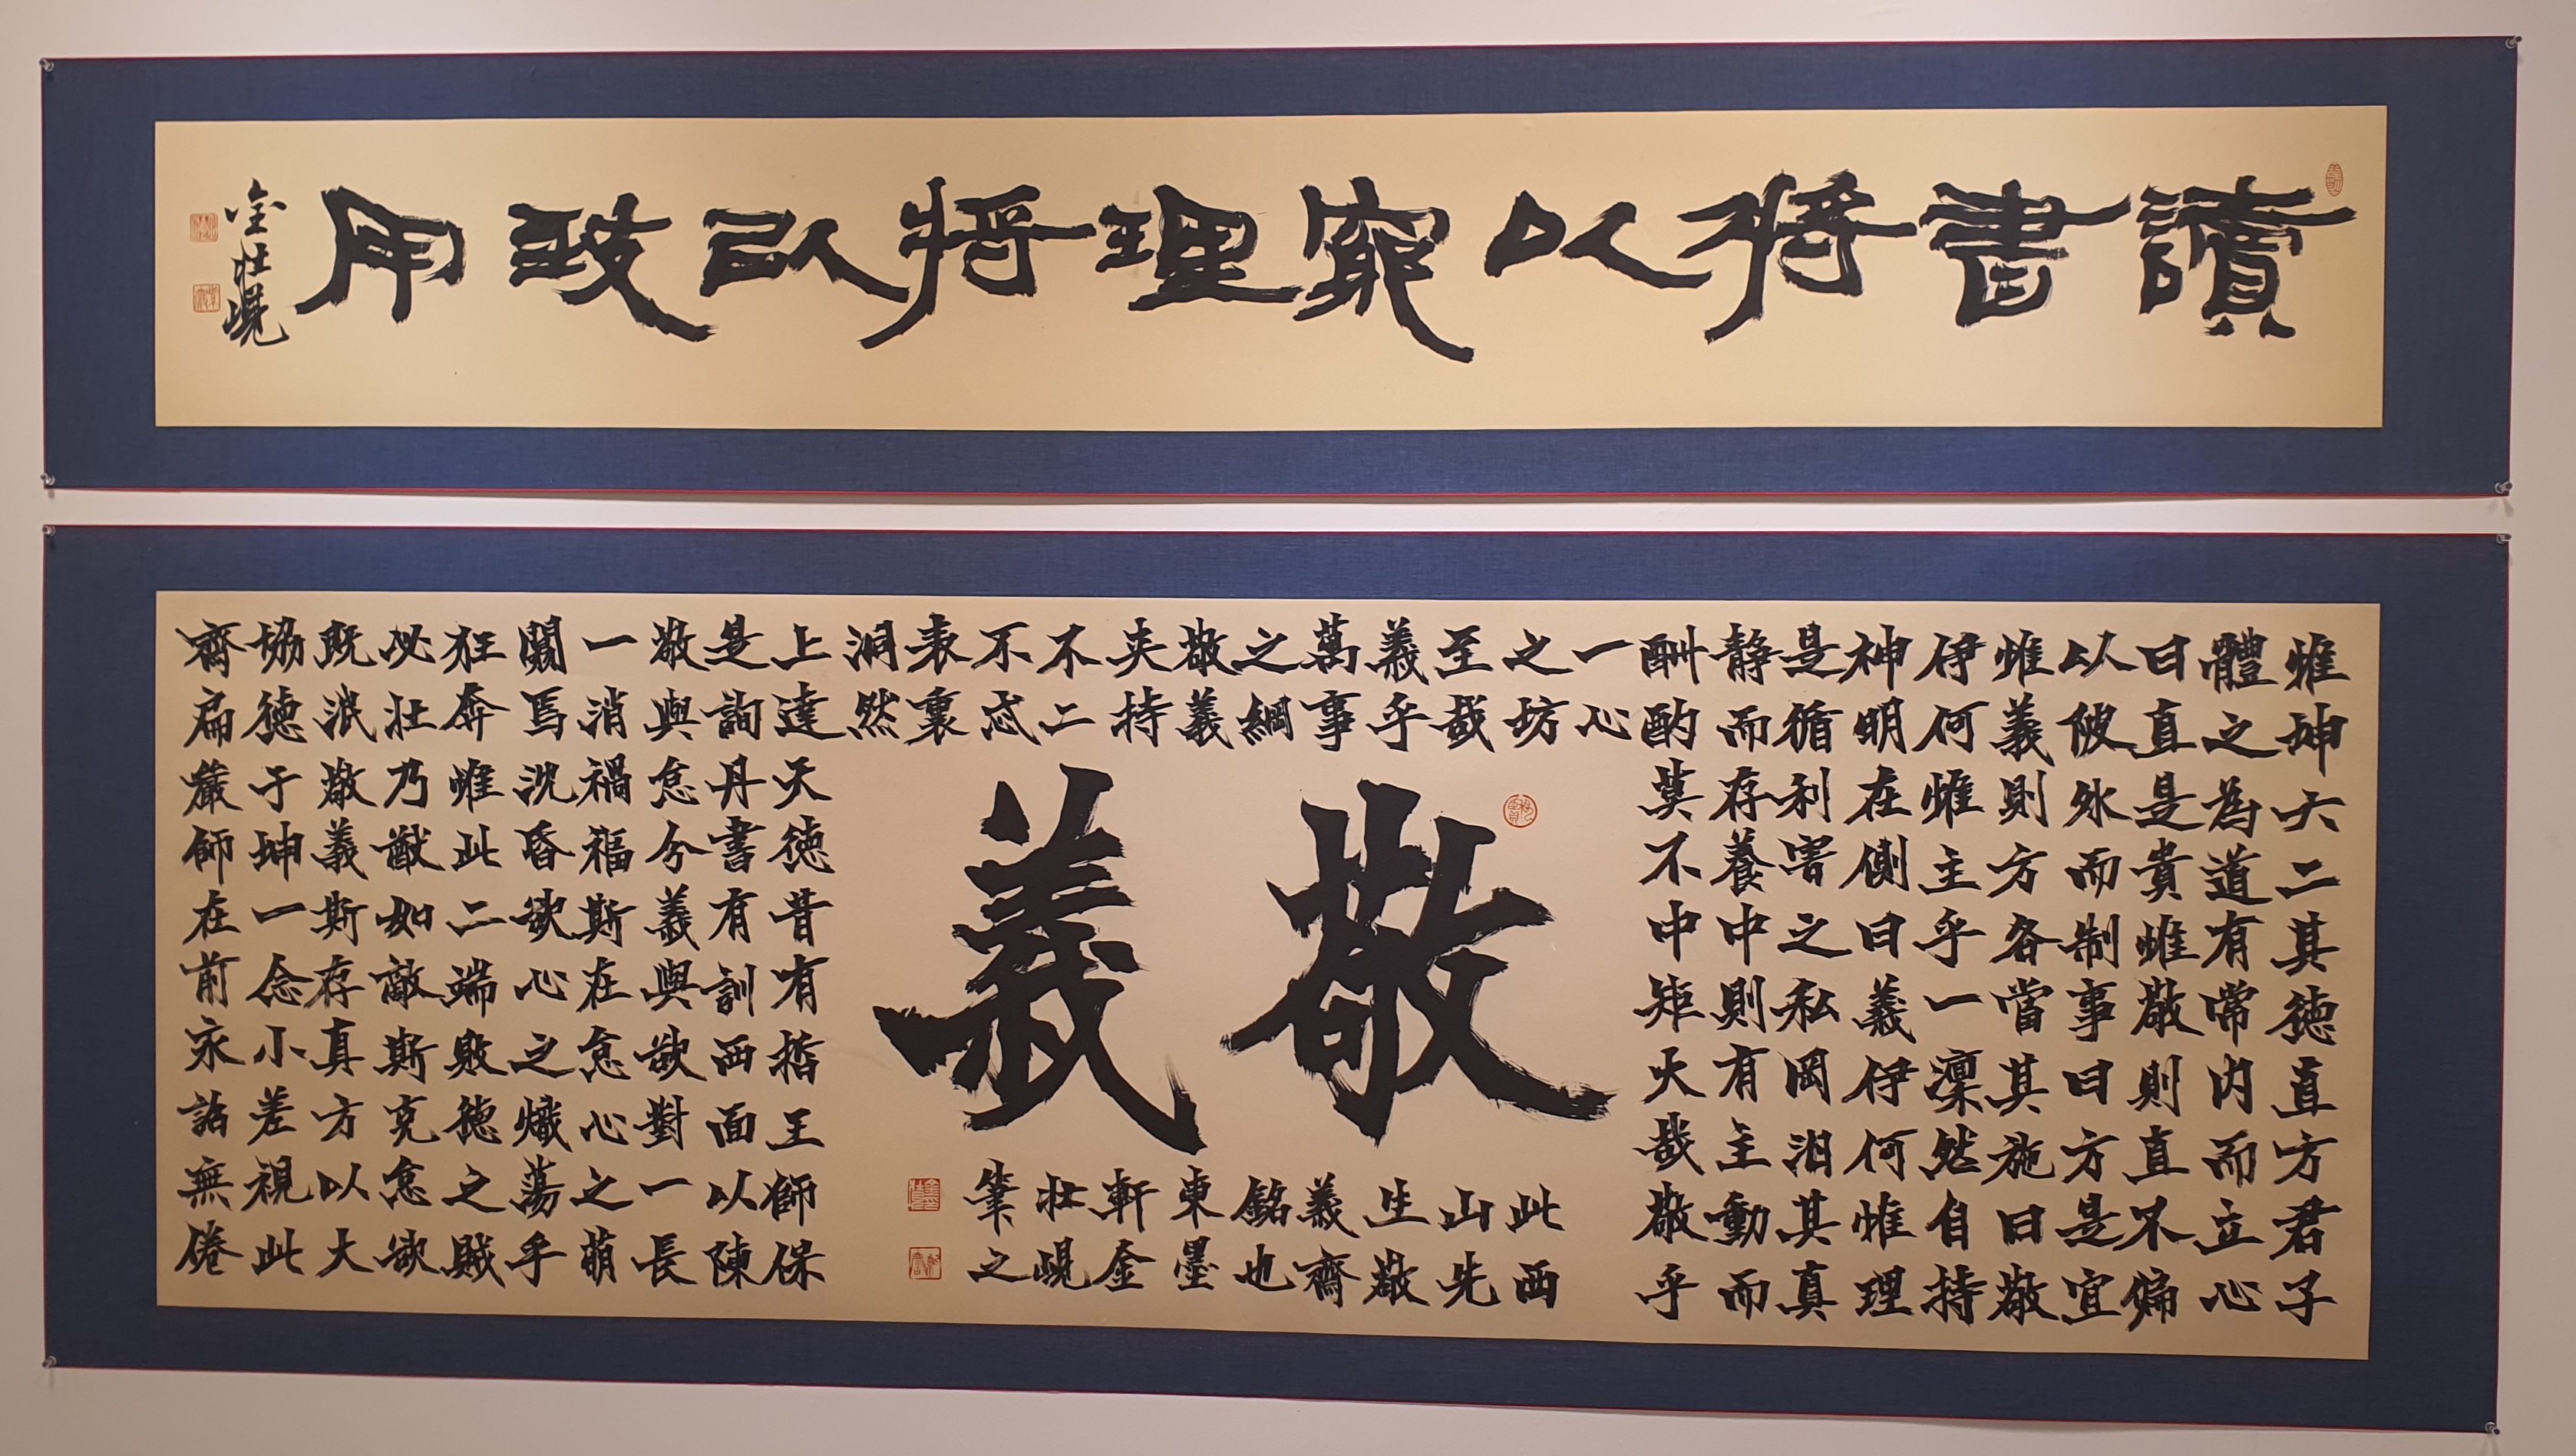 讀書將以窮理將以致用
金壯峴
惟坤六二其德直方君子
體之為道有常內而立心
曰直是貴惟敬則直不偏
以陂外而制事曰方是宜
惟義則方各當其施曰敬
伊何惟主乎一凜然自持
神明在側曰義伊何惟理
是循利害之私罔汨其真
靜而存養中則有主動而
酬酌莫不中矩大哉敬乎
一心
之坊
至哉
義乎
萬事
之綱
敬義
夾持
不二
不忒
表裏
洞然
上達天德昔有哲王師保
是詢丹書有訓西面以陳
敬與怠兮義與欲對一長
一消禍福斯在怠心之萌
闒焉沈昏欲心之熾蕩乎
狂奔惟此二端敗德之賊
必壯乃猷如敵斯克怠欲
既泯敬義斯存真方以大
協德于坤一念小差視此
齋扁嚴師在前永詔無倦
敬義
此西
山先
生敬
義齋
銘也
東墨
軒金
壯峴
筆之